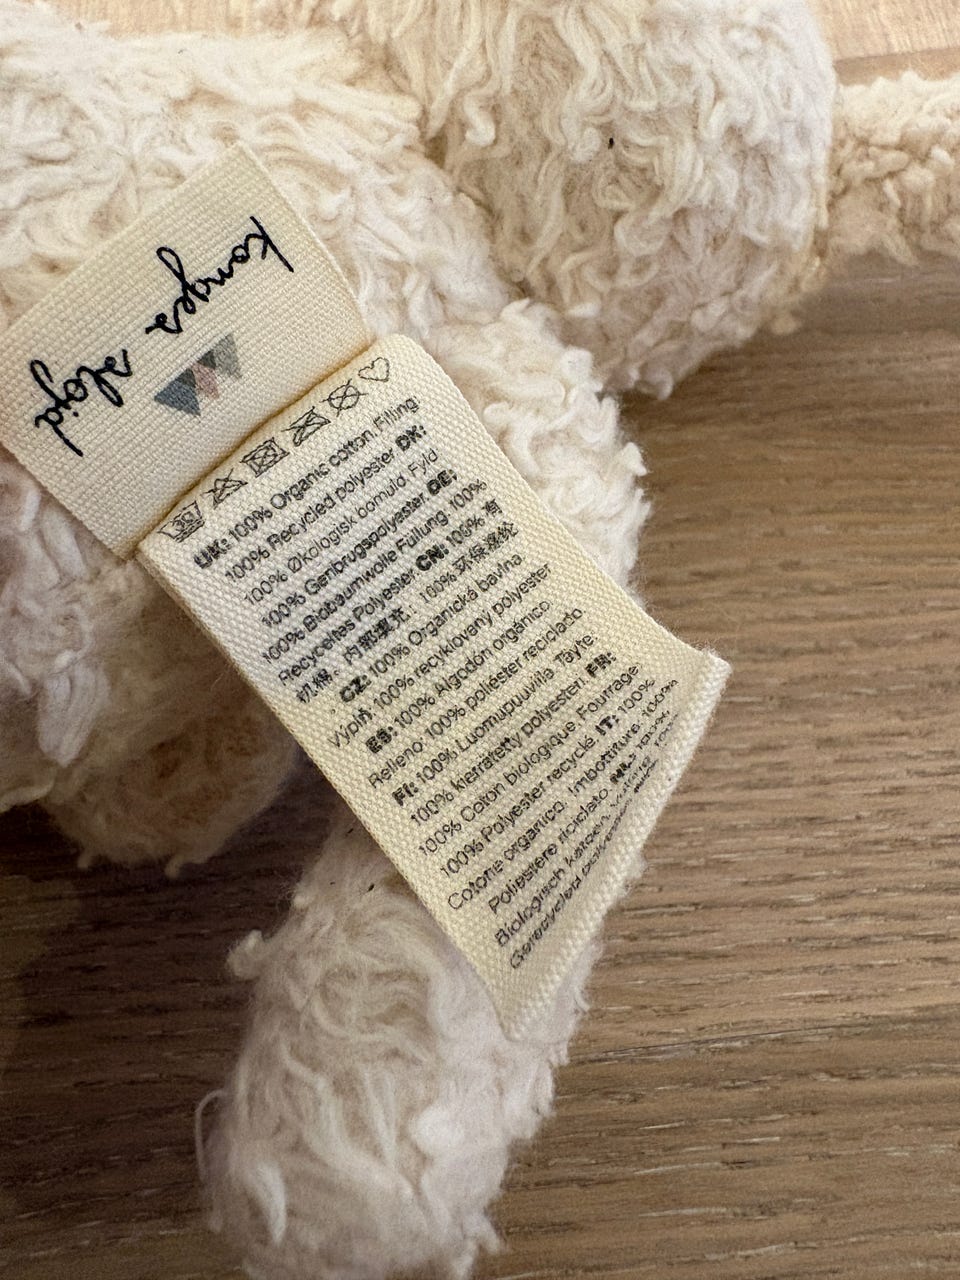 konges sløjd
30
UK: 100% Organic cotton. Filling:
100% Recycled polyester. DK:
100% Økologisk bomuld. Fyld
100% Genbrugspolyester. DE:
100% Biobaumwolle Füllung. 100%
Recyceltes Polyester. CN: 100% 有
机棉。内部填充：100% 环保涤纶
CZ: 100% Organická bavlna
Výplň: 100% recyklovaný polyester
ES: 100% Algodón orgánico.
Relleno: 100% poliéster reciclado
FI: 100% Luomupuuvilla. Täyte:
100% kierrätetty polyesteri. FR:
100% Coton biologique. Fourrage:
100% Polyester recyclé. IT: 100%
Cotone organico. Imbottitura: 100%
Poliestere riciclato. NL: 100%
Biologisch katoen. Vulling: 100%
Gerecycled